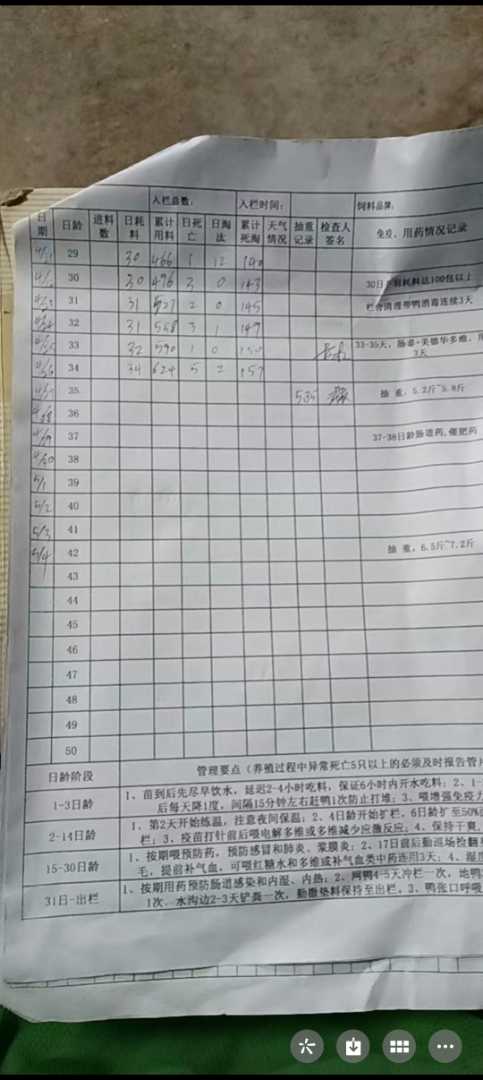 入栏总数: 入栏时间: 饲料品牌:
日期 日龄 进料数 日耗料 累计用料 日死亡 日淘汰 累计死淘 天气情况 抽重记录 检查人签名 免疫、用药情况记录
29 30 466 1 12 140
30 30 496 3 0 143 30日 耗料达100包以上
31 31 527 2 0 145 栏舍清理带鸭消毒连续3天
32 31 558 3 1 149
33 32 590 1 0 150 33-35天，肠毒+美德华多维，
3天
34 34 624 5 2 157
4/27 35 535 抽 重，5.2斤~5.8斤
4/28 36
4/29 37 37-38日龄肠道药,催肥药
4/30 38
5/1 39
5/2 40
5/3 41
5/4 42 抽 重，6.5斤~7.2斤
43
44
45
46
47
48
49
50
日龄阶段 管理要点（养殖过程中异常死亡5只以上的必须及时报告管
1-3日龄 1、苗到后先尽早饮水，延迟2-4小时吃料，保证6小时内开水吃料；2、1-
后每天降1度，间隔15分钟左右赶鸭1次防止打堆；3、喂增强免疫力
2-14日龄 1、第2天开始炼温，注意夜间保温；2、4日龄开始扩栏，6日龄扩至50%
栏；3、疫苗打针前后喂电解多维或多维减少应激反应。4、保持干爽，
15-30日龄 1、按期喂预防药，预防感冒和肺炎、浆膜炎；2、17日前后勤巡场捡翻
毛，提前补气血，可喂红糖水和多维或补气血类中药连用3天；4、湿度
31日-出栏 1、按期用药预防肠道感染和内湿、内热；2、网鸭4-5天冲栏一次，地鸭
1次，水沟边2-3天铲粪一次，勤撒垫料保持至出栏。3、鸭张口呼吸